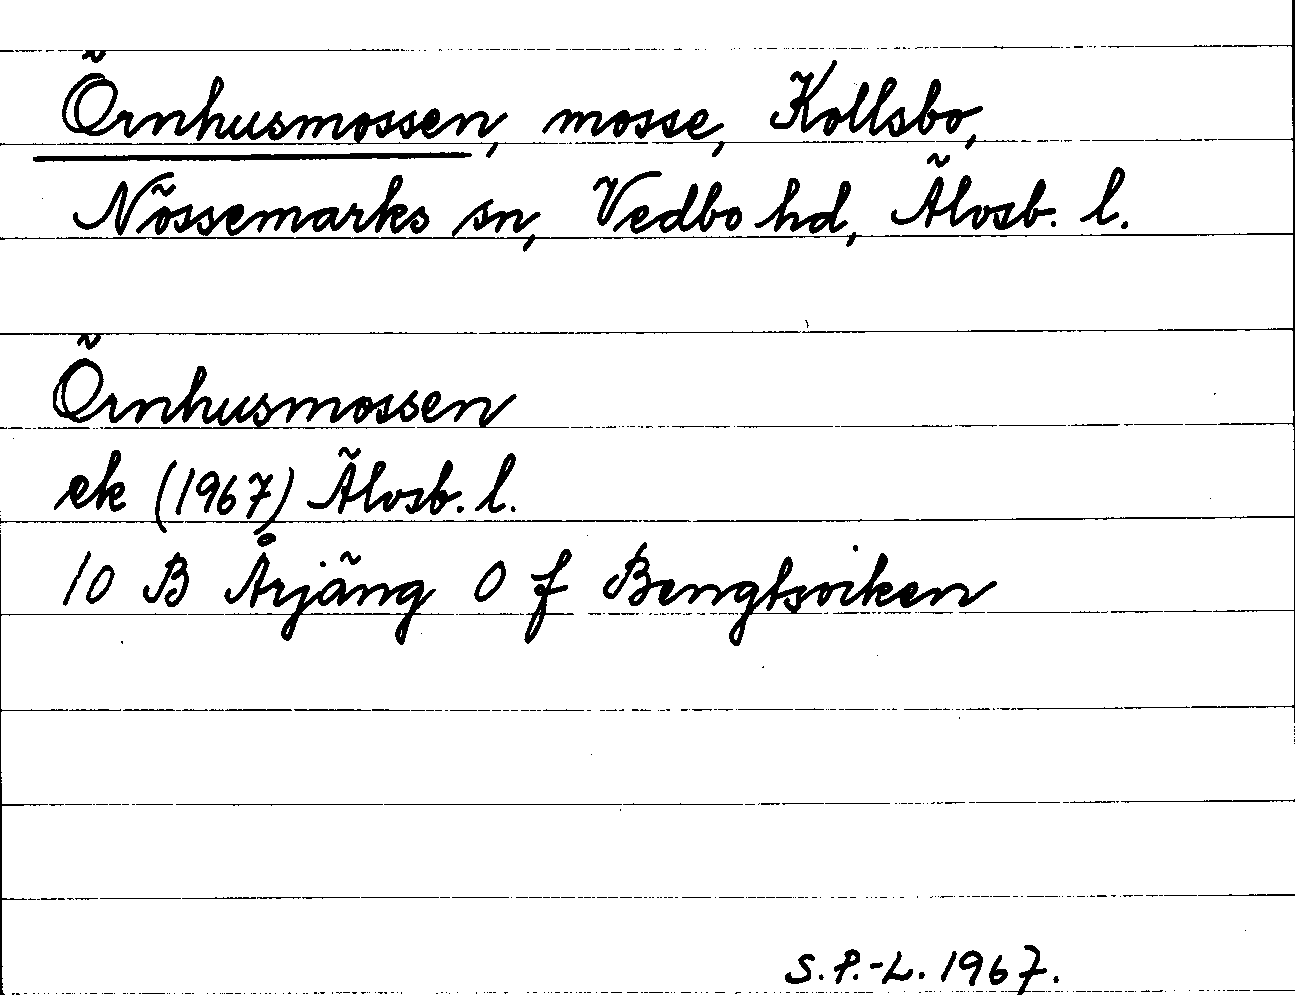 Örnhusmossen, mosse, Kollsbo,
Nössemarks sn, Vedbo hd, Älvsb. l.
Örnhusmossen
ek (1967) Älvsb. l.
10 B Årjäng 0 f Bengtsviken
S.P.-L. 1967.